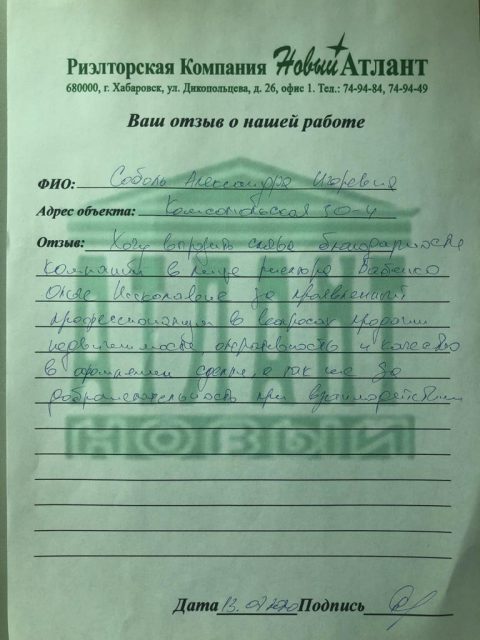 Риэлторская Компания Новый Атлант
680000, г. Хабаровск, ул. Дикопольцева, д. 26, офис 1. Тел.: 74-94-84, 74-94-49
Ваш отзыв о нашей работе
ФИО: Соболь Александра Игоревна
Адрес объекта: Комсомольская 90-4
Отзыв: Хочу выразить слова благодарности
компании в лице риелтора Бабенко
за проявленный
профессионализм в вопросах продажи
недвижимости, оперативность и качество
в оформлении сделки, а так же за
доброжелательность при взаимодействии
АТЛАНТ
Дата 13.07.2020 Подпись